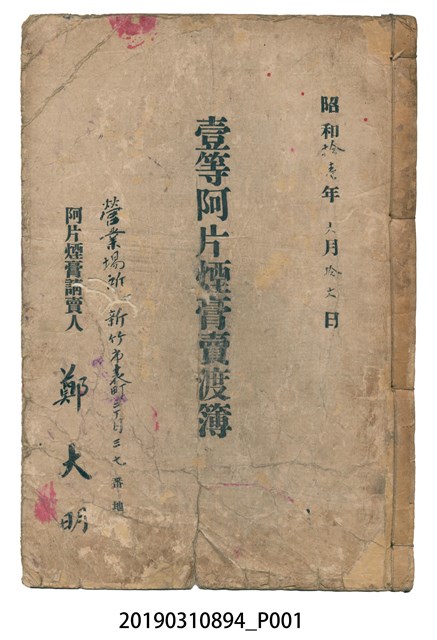 昭和拾壱年六月拾六日
壹等阿片煙膏賣渡簿
營業場所 新竹市表町三丁目三七番地
阿片煙膏請賣人 鄭大明
20190310894_P001